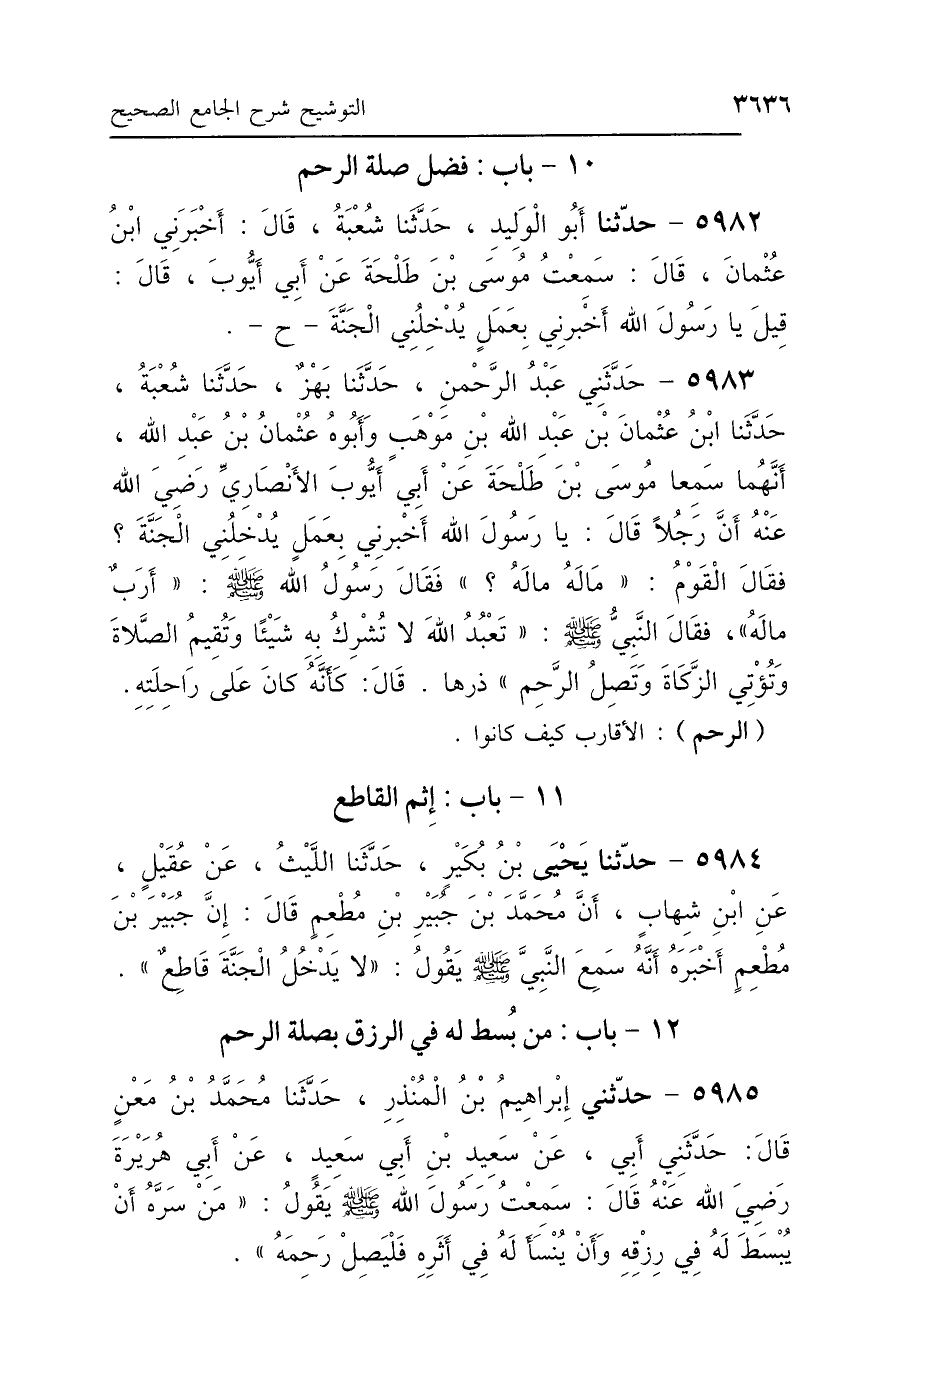 ٣٦٣٦ التوشيح شرح الجامع الصحيح
١٠ - باب : فضل صلة الرحم
٥٩٨٢ - حدّثنا أَبُو الْوَلِيدِ ، حَدَّثَنا شُعْبَةُ ، قَالَ : أَخْبَرَنِي ابْنُ
عُثْمانَ ، قَالَ : سَمِعْتُ مُوسَى بْنَ طَلْحَةَ عَنْ أَبِي أَيُّوبَ ، قَالَ :
قِيلَ يا رَسُولَ الله أَخْبِرنِي بِعَمَلٍ يُدْخِلُنِي الْجَنَّةَ - ح - .
٥٩٨٣ - حَدَّثَنِي عَبْدُ الرَّحْمنِ ، حَدَّثَنا بَهْزٌ ، حَدَّثَنا شُعْبَةُ ،
حَدَّثَنا ابْنُ عُثْمانَ بْنِ عَبْدِ الله بْنِ مَوْهَبٍ وأَبُوهُ عُثْمانُ بْنُ عَبْدِ الله ،
أَنَّهُما سَمِعا مُوسَى بْنَ طَلْحَةَ عَنْ أَبِي أَيُّوبَ الأَنْصَارِيِّ رَضِيَ الله
عَنْهُ أَنَّ رَجُلاً قَالَ : يا رَسُولَ الله أَخْبِرنِي بِعَمَلٍ يُدْخِلُنِي الْجَنَّةَ ؟
فقَالَ الْقَوْمُ : « مَالَهُ مالَهُ ؟ » فَقَالَ رَسُولُ الله ﷺ : « أَرَبٌ
مالَهُ»، فقَالَ النَّبِيُّ ﷺ : « تَعْبُدُ اللهَ لا تُشْرِكُ بِهِ شَيْئًا وَتُقِيمُ الصَّلاةَ
وَتُؤْتِي الزَّكَاةَ وَتَصِلُ الرَّحِم » ذرها . قَالَ: كَأَنَّهُ كانَ عَلَى رَاحِلَتِهِ.
( الرحم ) : الأقارب كيف كانوا .
١١ - باب : إِثم القاطع
٥٩٨٤ - حدّثنا يَحْيَى بْنُ بُكَيْرٍ ، حَدَّثَنا اللَّيْثُ ، عَنْ عُقَيْلٍ ،
عَنِ ابْنِ شِهابٍ ، أَنَّ مُحَمَّدَ بْنَ جُبَيْرِ بْنِ مُطْعِمٍ قَالَ : إِنَّ جُبَيْرَ بْنَ
مُطْعِمٍ أَخْبَرَهُ أَنَّهُ سَمِعَ النَّبِيَّ ﷺ يَقُولُ : «لا يَدْخُلُ الْجَنَّةَ قَاطِعٌ» .
١٢ - باب : من بُسط له في الرزق بصلة الرحم
٥٩٨٥ - حدّثني إِبْراهِيمُ بْنُ الْمُنْذِرِ ، حَدَّثَنا مُحَمَّدُ بْنُ مَعْنٍ
قَالَ: حَدَّثَنِي أَبِي ، عَنْ سَعِيدِ بْنِ أَبِي سَعِيدٍ ، عَنْ أَبِي هُرَيْرَةَ
رَضِيَ الله عَنْهُ قَالَ : سَمِعْتُ رَسُولَ الله ﷺ يَقُولُ : « مَنْ سَرَّهُ أَنْ
يُبْسَطَ لَهُ فِي رِزْقِهِ وَأَنْ يُنْسَأَ لَهُ فِي أَثَرِهِ فَلْيَصِلْ رَحِمَهُ » .